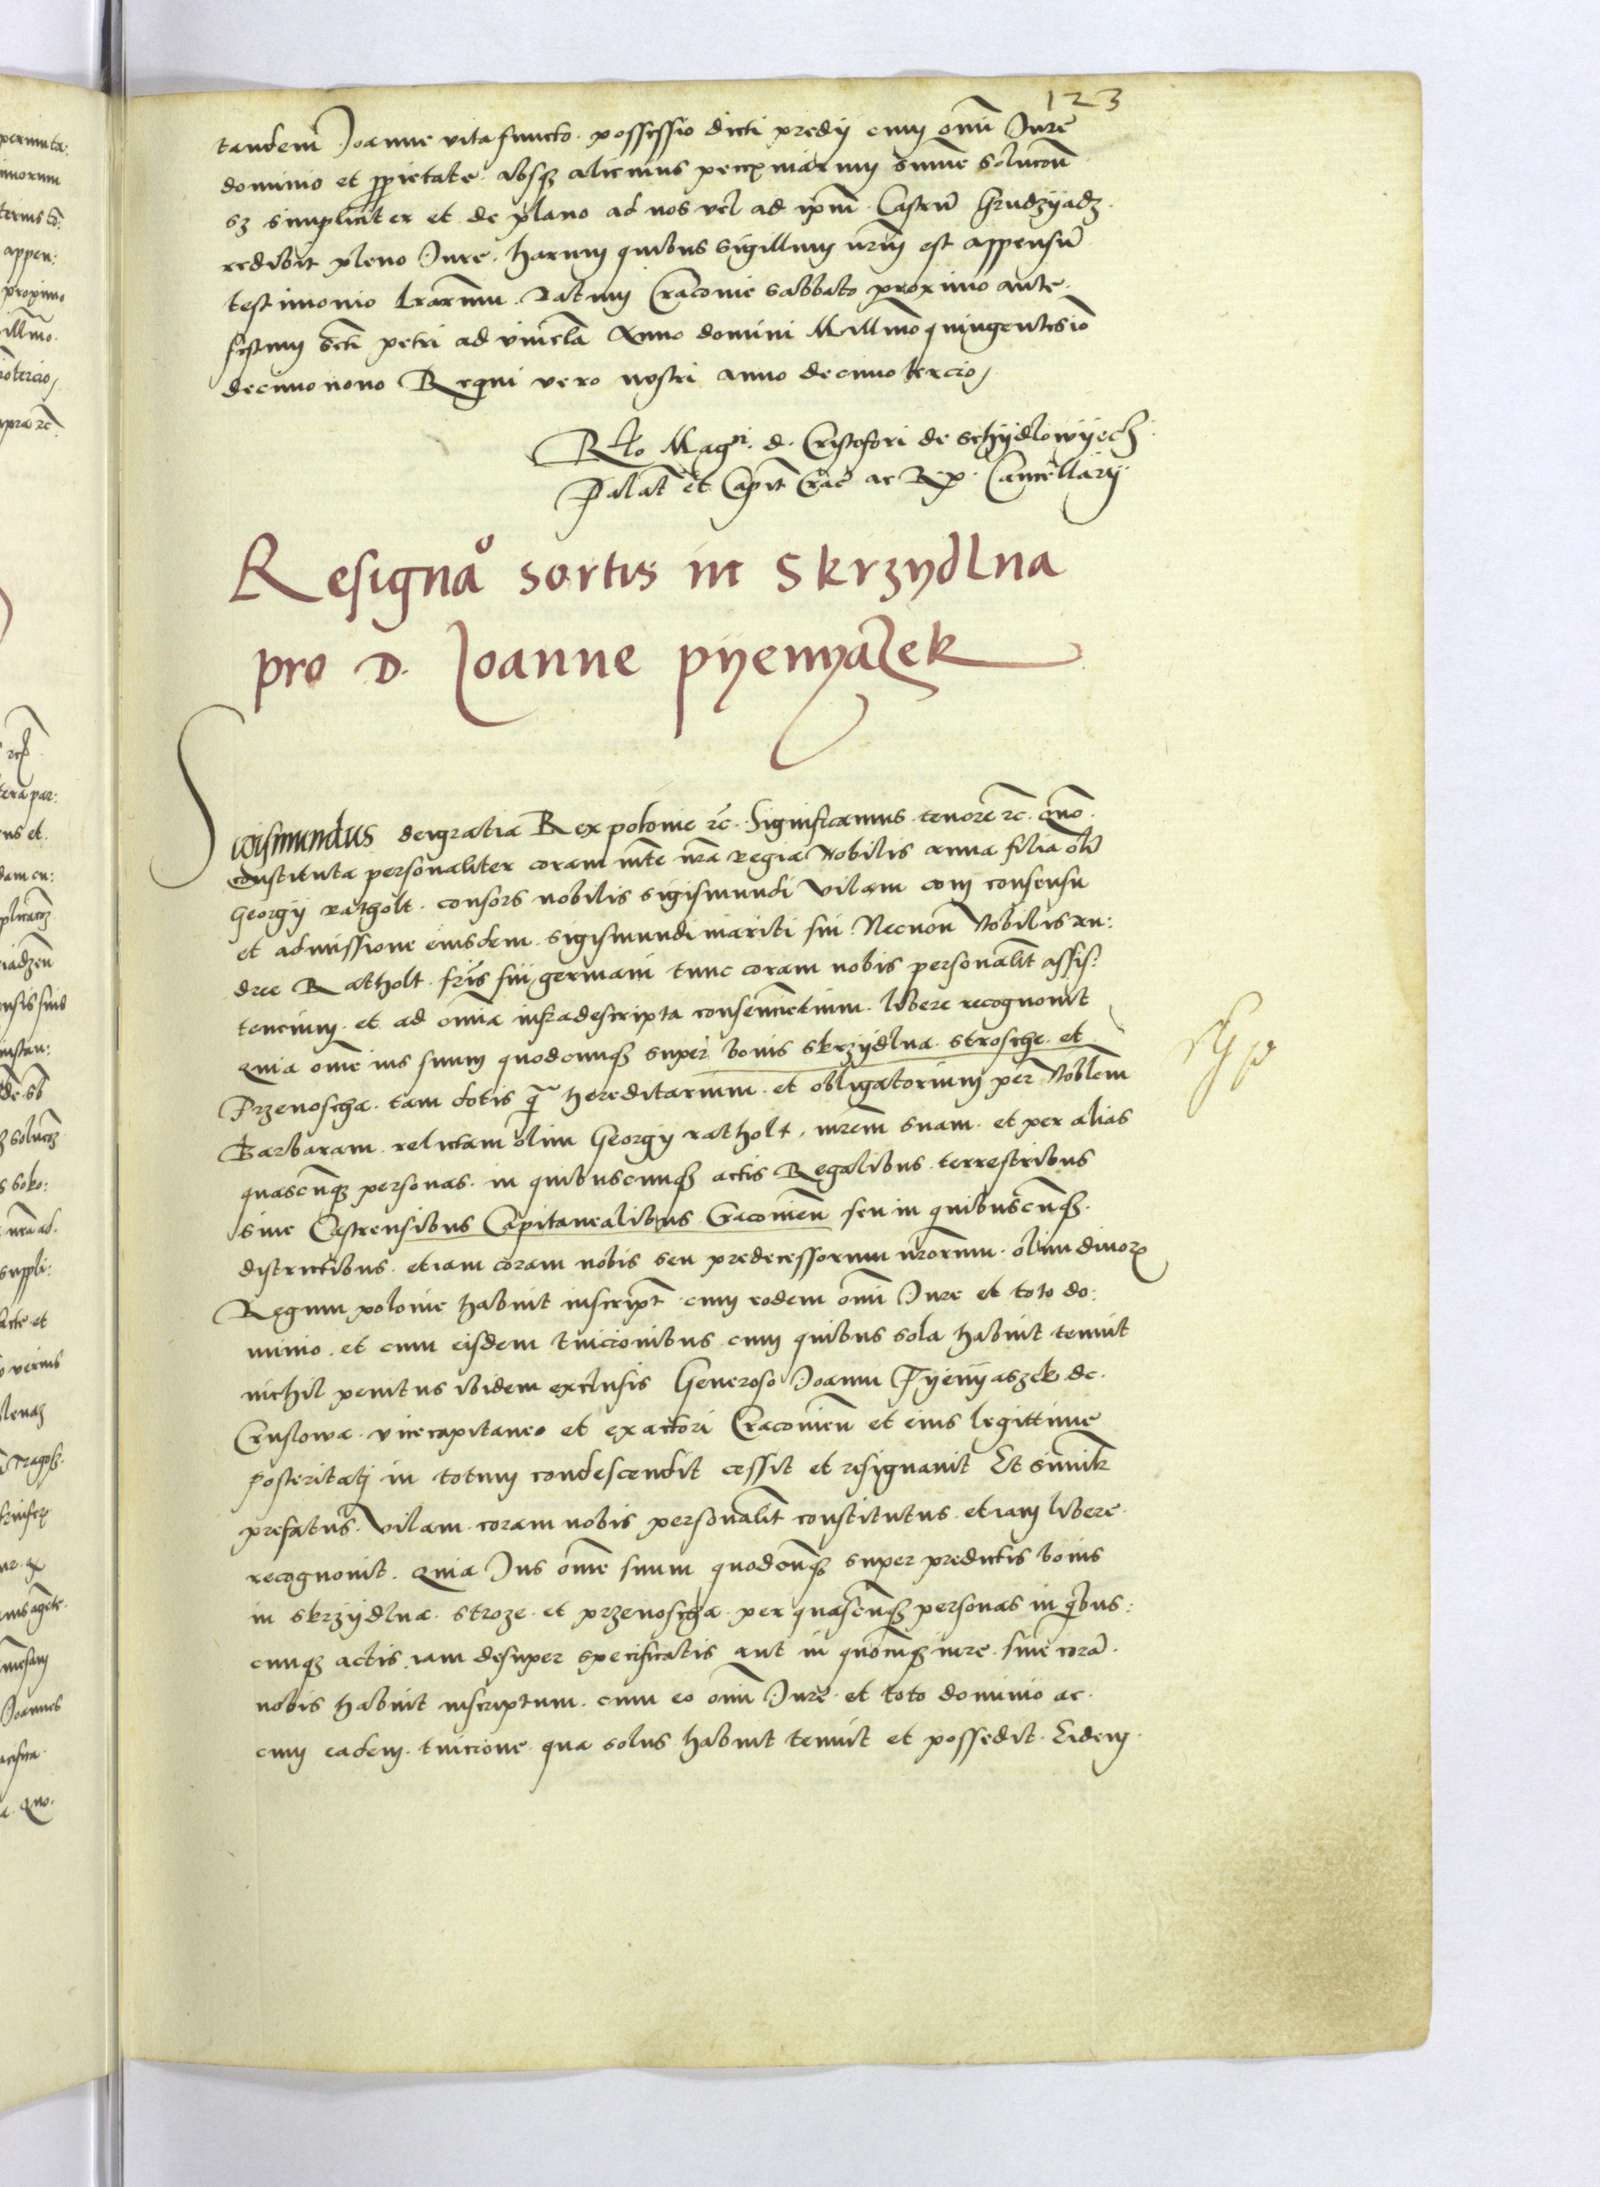 123
tandem Joanne vita functo. possessio dicti predij cum omni Jure
dominio et proprietate. absq3 alicuius pecuniarum summe solucione
s3 simpliciter et de plano ad nos vel ad ipm Castrum Grudzyadz.
redibit pleno Jure. harum quibus sigillum nrm est appensum
testimonio lrarum. Datum Cracovie sabbato proximo ante
festum scti petri ad vincla Anno domini Millmo quingentesimo
decimo nono Regni vero nostri anno decimo tercio
Rlo Magci. d. Cristofori de Schydlowyecz
Palat et Capit Crac ac R. p. Cancellarij
Resignao sortis in Skrzydlna
pro D. Joanne pyenyazek
Sigismundus dei gratia Rex polonie rc. Significamus tenore rc. quo.
constituta personaliter coram mte nra regia Nobilis anna filia olim
Georgij ratholt. consors nobilis sigismundi Vilam com consensu
et admissione eiusdem. sigismundi mariti sui Necnon Nobilis An:
dree Ratholt. fris sui germani tunc coram nobis personalit assis:
tencium. et ad omia infradescripta consenciencium. libere recognovit
quia ome ius suum quodcunq3 super bonis skrzydlna. strosche. et
Przenoscha. tam dotis q hereditarium. et obligatorium per Noblem
Barbaram. relictam olim Georgij ratholt. mrem suam. et per alias
quascunq3 personas. in quibuscunq3 actis Regalibus. terrestribus
sive Castrensibus Capitanealibus Cracovien seu in quibuscunq3.
districtibus. etiam coram nobis seu predecessorum nrorum. olim divorum
Regum polonie habuit inscript. cum eodem omni Jure et toto do:
minio. et cum eisdem tuicionibus. cum quibus sola habuit tenuit
nichil penitus ibidem exclusis Generoso Joanni Pyenyaszek de
Cruslowa. vicecapitaneo et exactori Cracovien et eius legittime
posteritati in totum condescendit cessit et resignavit Et similr
prefatus. Vilam. coram nobis personalit constitutus. etiam libere.
recognovit. quia Jus ome suum quodcunq3 super predictis bonis
in skrzydlna. stroze. et przenoscha. per quascunq3 personas in quibus:
cunq3 actis. iam desuper specificatis aut in quocunq3 iure. sive coram
nobis habuit inscriptum. cum eo omni Jure. et toto dominio ac.
cum eadem. tuicione. qua solus habuit tenuit et possedit. Eidem.